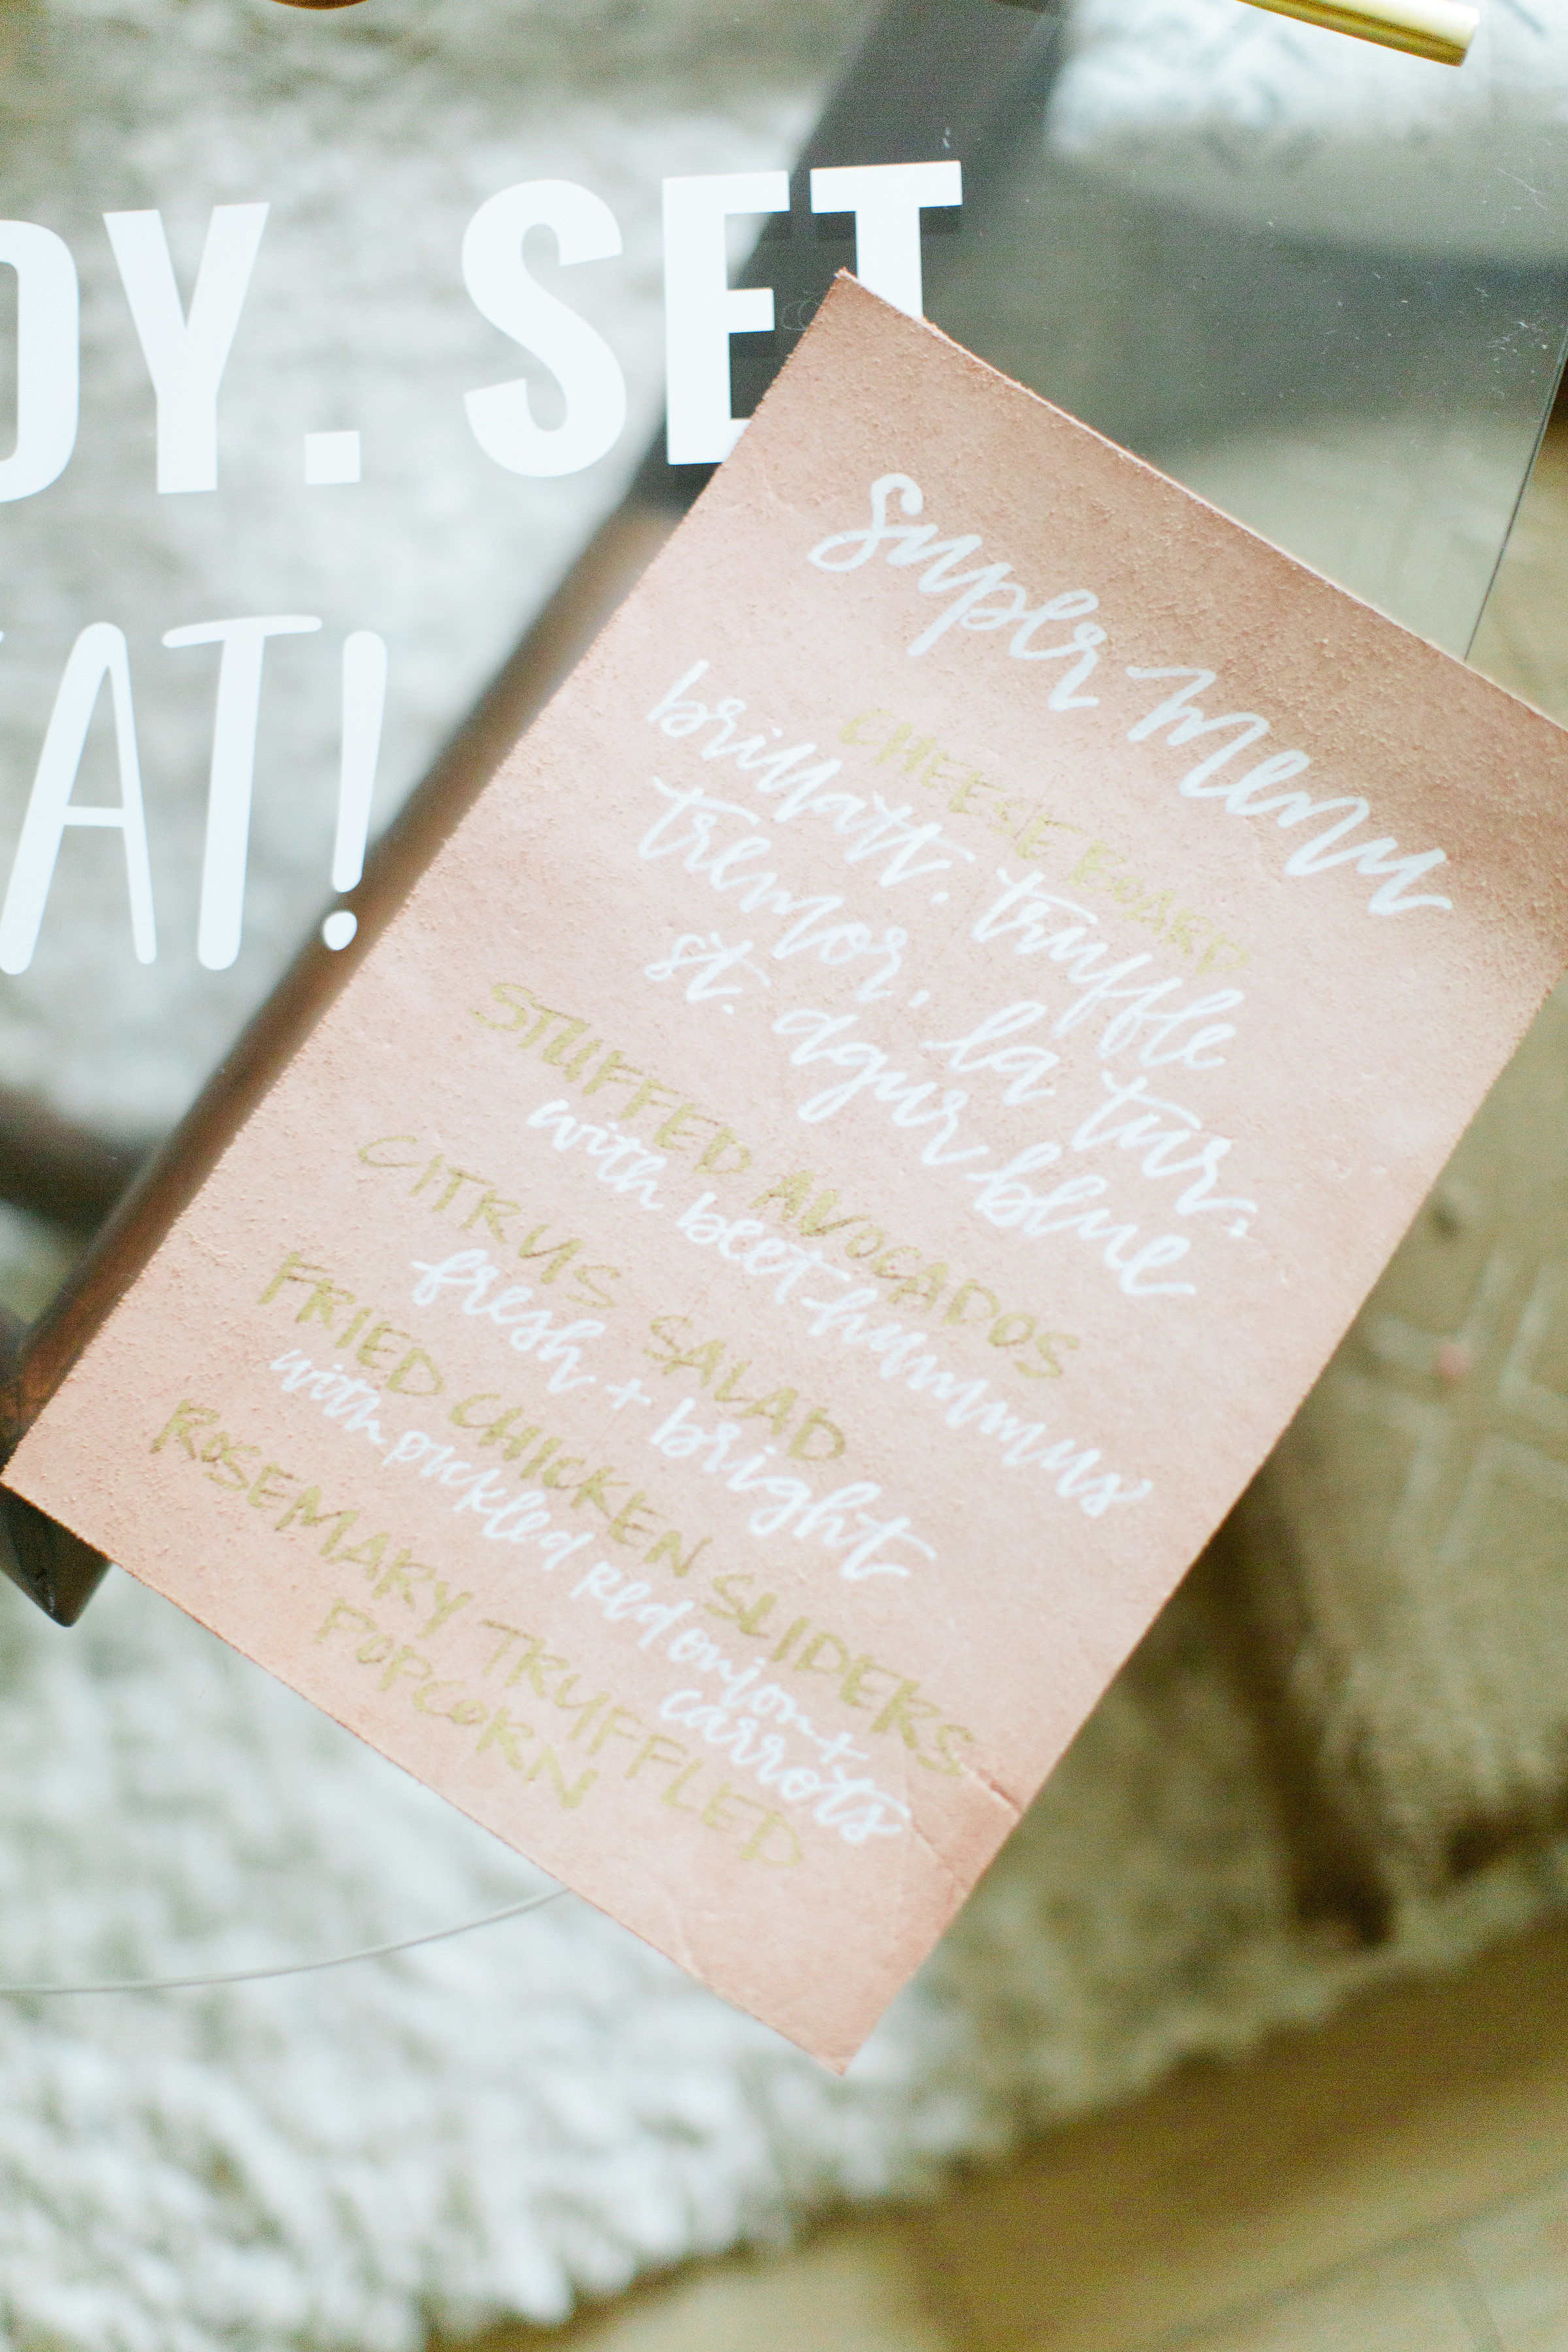 DY. SET
EAT!
super menu
CHEESE BOARD
brillatt. truffle
tremor. la tur.
st. agur blue
STUFFED AVOCADOS
with beet hummus
CITRUS SALAD
fresh + bright
FRIED CHICKEN SLIDERS
with pickled red onion +
carrots
ROSEMARY TRUFFLED
POPCORN